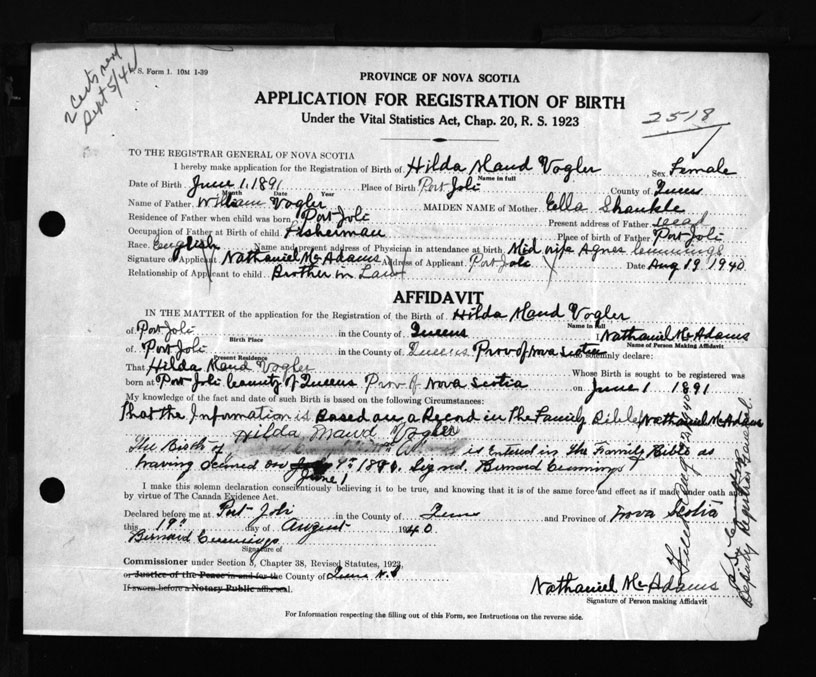 2 Certs
Sept 5/4
V. S. Form 1. 10M 1-39
PROVINCE OF NOVA SCOTIA
APPLICATION FOR REGISTRATION OF BIRTH
Under the Vital Statistics Act, Chap. 20, R. S. 1923
2518
TO THE REGISTRAR GENERAL OF NOVA SCOTIA
I hereby make application for the Registration of Birth of Hilda Maud Vogler Sex Female
Name in full
Date of Birth June 1. 1891 Place of Birth Port Joli County of Queens
Month Date Year
Name of Father William Vogler MAIDEN NAME of Mother Ella Shankle
Residence of Father when child was born, Port Joli Present address of Father dead
Occupation of Father at Birth of child Fisherman Place of birth of Father Port Joli
Race. English Name and present address of Physician in attendance at birth Mid wife Agnes Cummings
Signature of Applicant Nathaniel McAdams Address of Applicant Port Joli Date Aug 19 1940
Relationship of Applicant to child Brother in Law
AFFIDAVIT
IN THE MATTER of the application for the Registration of the Birth of Hilda Maud Vogler
Name in full
of Port Joli in the County of Queens I, Nathaniel McAdams
Birth Place Name of Person Making Affidavit
of Port Joli in the County of Queens Prov of Nova Scotia solemnly declare:
Present Residence
That Hilda Maud Vogler Whose Birth is sought to be registered was
born at Port Joli County of Queens Prov of Nova Scotia on June 1 1891
My knowledge of the fact and date of such Birth is based on the following Circumstances:
that the Information is Based on a Record in The Family Bible Nathaniel McAdams
The Birth of Hilda Maud Vogler is Entered in The Family Bible as
having on June 1 Signed. Bernard Cummings
I make this solemn declaration conscientiously believing it to be true, and knowing that it is of the same force and effect as if made under oath and
by virtue of The Canada Evidence Act.
Declared before me at Port Joli in the County of Queens and Province of Nova Scotia
this 19th day of August 1940
Bernard Cummings
Signature of
Commissioner under Section 5, Chapter 38, Revised Statutes, 1923,
or Justice of the Peace in and for the County of Queens N.S
If sworn before a Notary Public affix seal.
Nathaniel McAdams
Signature of Person making Affidavit
For Information respecting the filling out of this Form, see Instructions on the reverse side.
Deputy Registrar General.